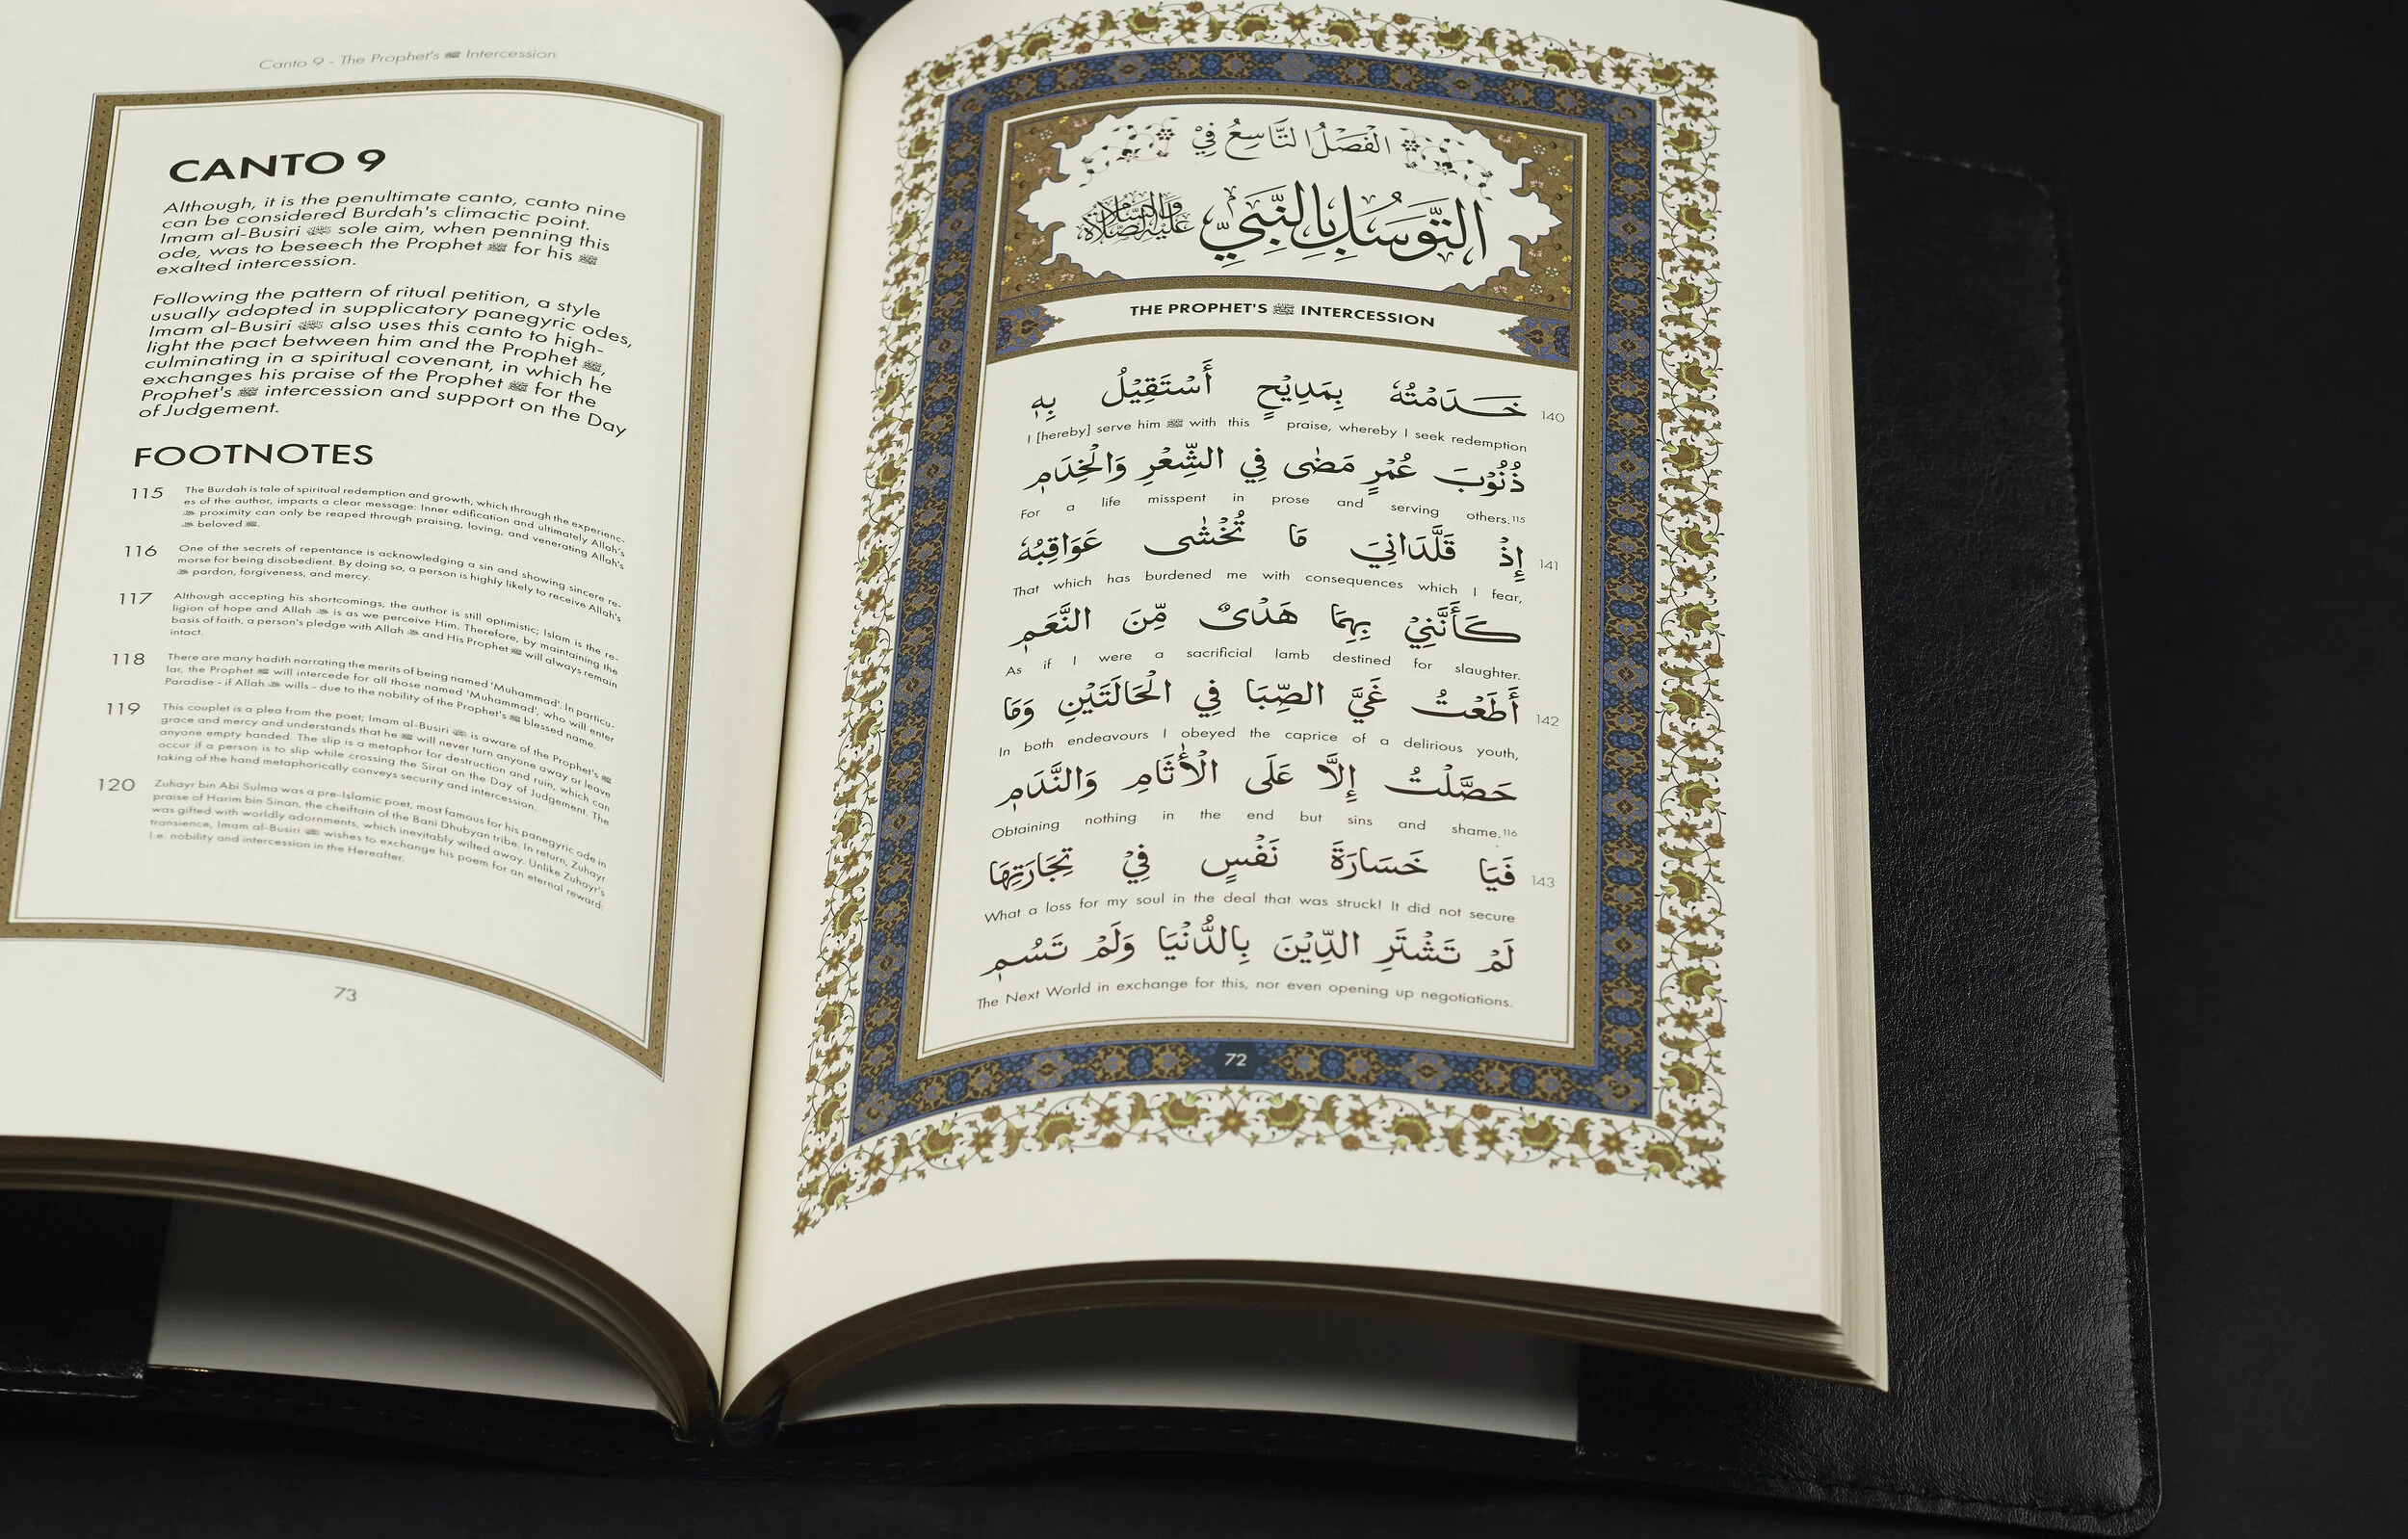 الْفَصْلُ التَّاسِعُ فِيْ
التَّوَسُّلِ بِالنَّبِيِّ عَلَيْهِ الصَّلَاةُ وَالسَّلَامُ
THE PROPHET'S ﷺ INTERCESSION
خَدَمْتُهُ بِمَدِيْحٍ أَسْتَقِيْلُ بِهِ 140
I [hereby] serve him ﷺ with this praise, whereby I seek redemption
ذُنُوْبَ عُمْرٍ مَضٰى فِي الشِّعْرِ وَالْخِدَمِ
For a life misspent in prose and serving others.115
إِذْ قَلَّدَانِيَ مَا تُخْشٰى عَوَاقِبُهُ 141
That which has burdened me with consequences which I fear,
كَأَنَّنِيْ بِهِمَا هَدْىٌ مِّنَ النَّعَمِ
As if I were a sacrificial lamb destined for slaughter.
أَطَعْتُ غَيَّ الصِّبَا فِي الْحَالَتَيْنِ وَمَا 142
In both endeavours I obeyed the caprice of a delirious youth,
حَصَّلْتُ إِلَّا عَلَى الْأٰثَامِ وَالنَّدَمِ
Obtaining nothing in the end but sins and shame.116
فَيَا خَسَارَةَ نَفْسٍ فِيْ تِجَارَتِهَا 143
What a loss for my soul in the deal that was struck! It did not secure
لَمْ تَشْتَرِ الدِّيْنَ بِالدُّنْيَا وَلَمْ تَسُمِ
The Next World in exchange for this, nor even opening up negotiations.
72
Canto 9 - The Prophet's ﷺ Intercession
CANTO 9
Although, it is the penultimate canto, canto nine
can be considered Burdah's climactic point.
Imam al-Busiri sole aim, when penning this
ode, was to beseech the Prophet ﷺ for his ﷺ
exalted intercession.
Following the pattern of ritual petition, a style
usually adopted in supplicatory panegyric odes,
Imam al-Busiri also uses this canto to high-
light the pact between him and the Prophet ﷺ,
culminating in a spiritual covenant, in which he
exchanges his praise of the Prophet ﷺ for the
Prophet's ﷺ intercession and support on the Day
of Judgement.
FOOTNOTES
115 The Burdah is tale of spiritual redemption and growth, which through the experienc-
es of the author, imparts a clear message: Inner edification and ultimately Allah's
ﷻ proximity can only be reaped through praising, loving, and venerating Allah's
ﷻ beloved ﷺ.
116 One of the secrets of repentance is acknowledging a sin and showing sincere re-
morse for being disobedient. By doing so, a person is highly likely to receive Allah's
ﷻ pardon, forgiveness, and mercy.
117 Although accepting his shortcomings, the author is still optimistic; Islam is the re-
ligion of hope and Allah ﷻ is as we perceive Him. Therefore, by maintaining the
basis of faith, a person's pledge with Allah ﷻ and His Prophet ﷺ will always remain
intact.
118 There are many hadith narrating the merits of being named 'Muhammad'. In particu-
lar, the Prophet ﷺ will intercede for all those named 'Muhammad', who will enter
Paradise - if Allah ﷻ wills - due to the nobility of the Prophet's ﷺ blessed name.
119 This couplet is a plea from the poet; Imam al-Busiri is aware of the Prophet's ﷺ
grace and mercy and understands that he ﷺ will never turn anyone away or leave
anyone empty handed. The slip is a metaphor for destruction and ruin, which can
occur if a person is to slip while crossing the Sirat on the Day of Judgement. The
taking of the hand metaphorically conveys security and intercession.
120 Zuhayr bin Abi Sulma was a pre-Islamic poet, most famous for his panegyric ode in
praise of Harim bin Sinan, the cheiftain of the Bani Dhubyan tribe. In return, Zuhayr
was gifted with worldly adornments, which inevitably wilted away. Unlike Zuhayr's
transience, Imam al-Busiri wishes to exchange his poem for an eternal reward:
i.e. nobility and intercession in the Hereafter.
73